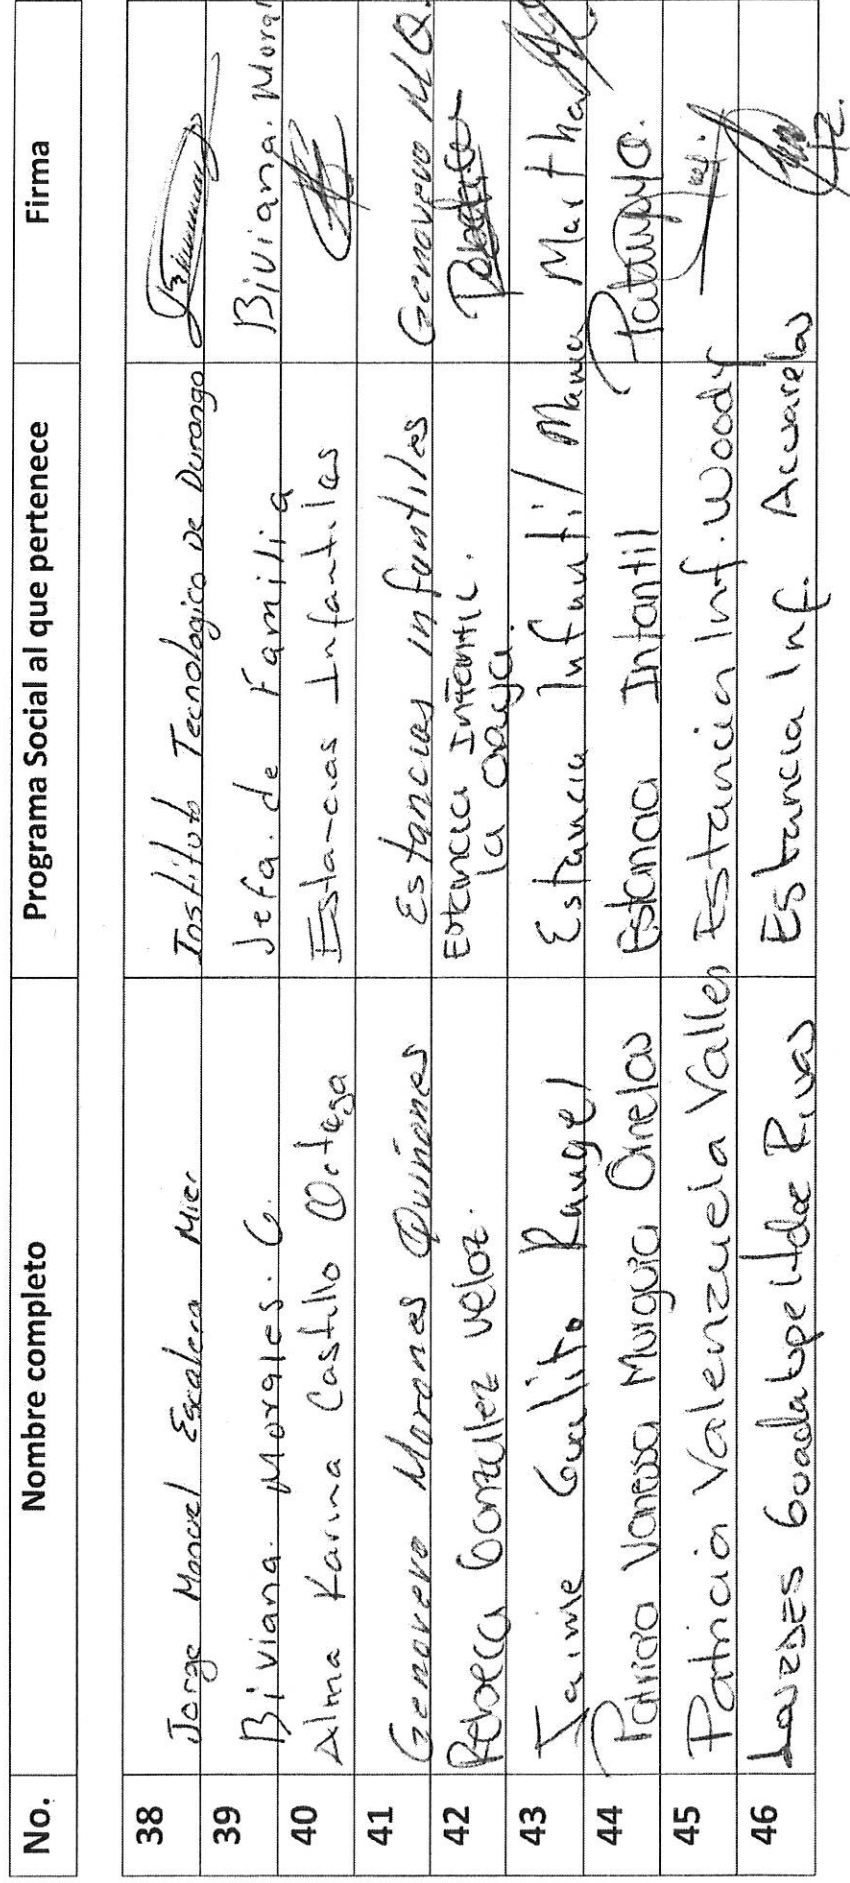 No. Nombre completo Programa Social al que pertenece Firma
38 Jorge Manuel Escalera Mier Instituto Tecnologico De Durango
39 Biviana. Morales. G. Jefa. de Familia Biviana. Moral
40 Alma Karina Castillo Ortega Estancias Infantiles
41 Genoveva Morones Quiñones Estancias infantiles Genoveva M Q.
42 Rebeca Gonzalez Veloz. Estancia Infantil.
la
43 Jaime Rangel Estancia Infantil Martha
44 Patricia Vanessa Murguia Ornelas Estancia Infantil
45 Patricia Valenzuela Valles Estancia Inf. Woody
46 Lourdes Guadalupe Rivas Estancia Inf. Acuarelas